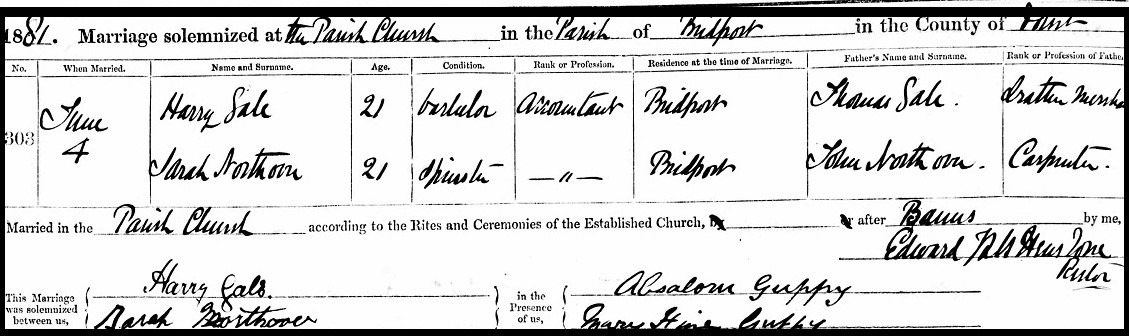 1881. Marriage solemnized at the Parish Church in the Parish of Bridport in the County of Dorset
No. When Married. Name and Surname. Age. Condition. Rank or Profession. Residence at the time of Marriage. Father's Name and Surname. Rank or Profession of Father
303 June 4 Harry Gale 21 bachelor Accountant Bridport Thomas Gale.
Sarah Northover 21 Spinster —"— Bridport John Northover. Carpenter.
Married in the Parish Church according to the Rites and Ceremonies of the Established Church, by or after Banns by me,
Edward
Rector
This Marriage was solemnized between us, Harry Gale. in the Presence of us, Absalom Guppy
Sarah Northover Mary Hine Guppy